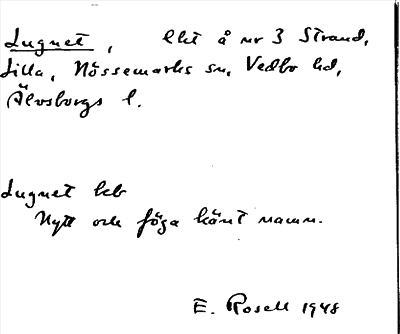 Lugnet, lht å nr 3 Strand,
Lilla, Nössemarks sn, Vedbo hd,
Älvsborgs l.
Lugnet lht
Nytt och föga känt namn.
E. Rosell 1948